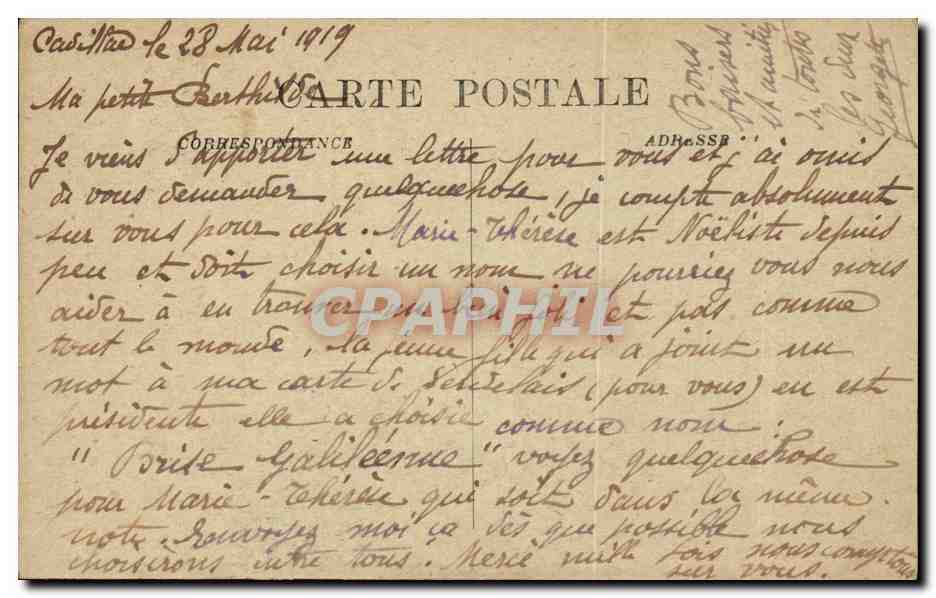 Cadillac le 28 Mai 1919
Ma petite Berthilde
CARTE POSTALE
CORRESPONDANCE
ADRESSE
Je viens d'apporter une lettre pour vous et j'ai omis
de vous demander quelquechose, je compte absolument
sur vous pour cela. Marie-Thérèse est Noëliste depuis
peu et doit choisir un nom ne pourriez vous nous
aider à en trouver un bien joli et pas comme
tout le monde, la jeune fille qui a joint un
mot à ma carte de (pour vous) en est
présidente elle a choisie comme nom :
"Brise Galiléenne" voyez quelquechose
pour Marie-Thérèse qui soit dans la même
note. Renvoyez moi ça dès que possible nous
choisirons entre tous. Merci mille fois nous comptons
sur vous.
Bons
baisers
et amitiés
à toutes
les deux
Georgette
CPAPHIL